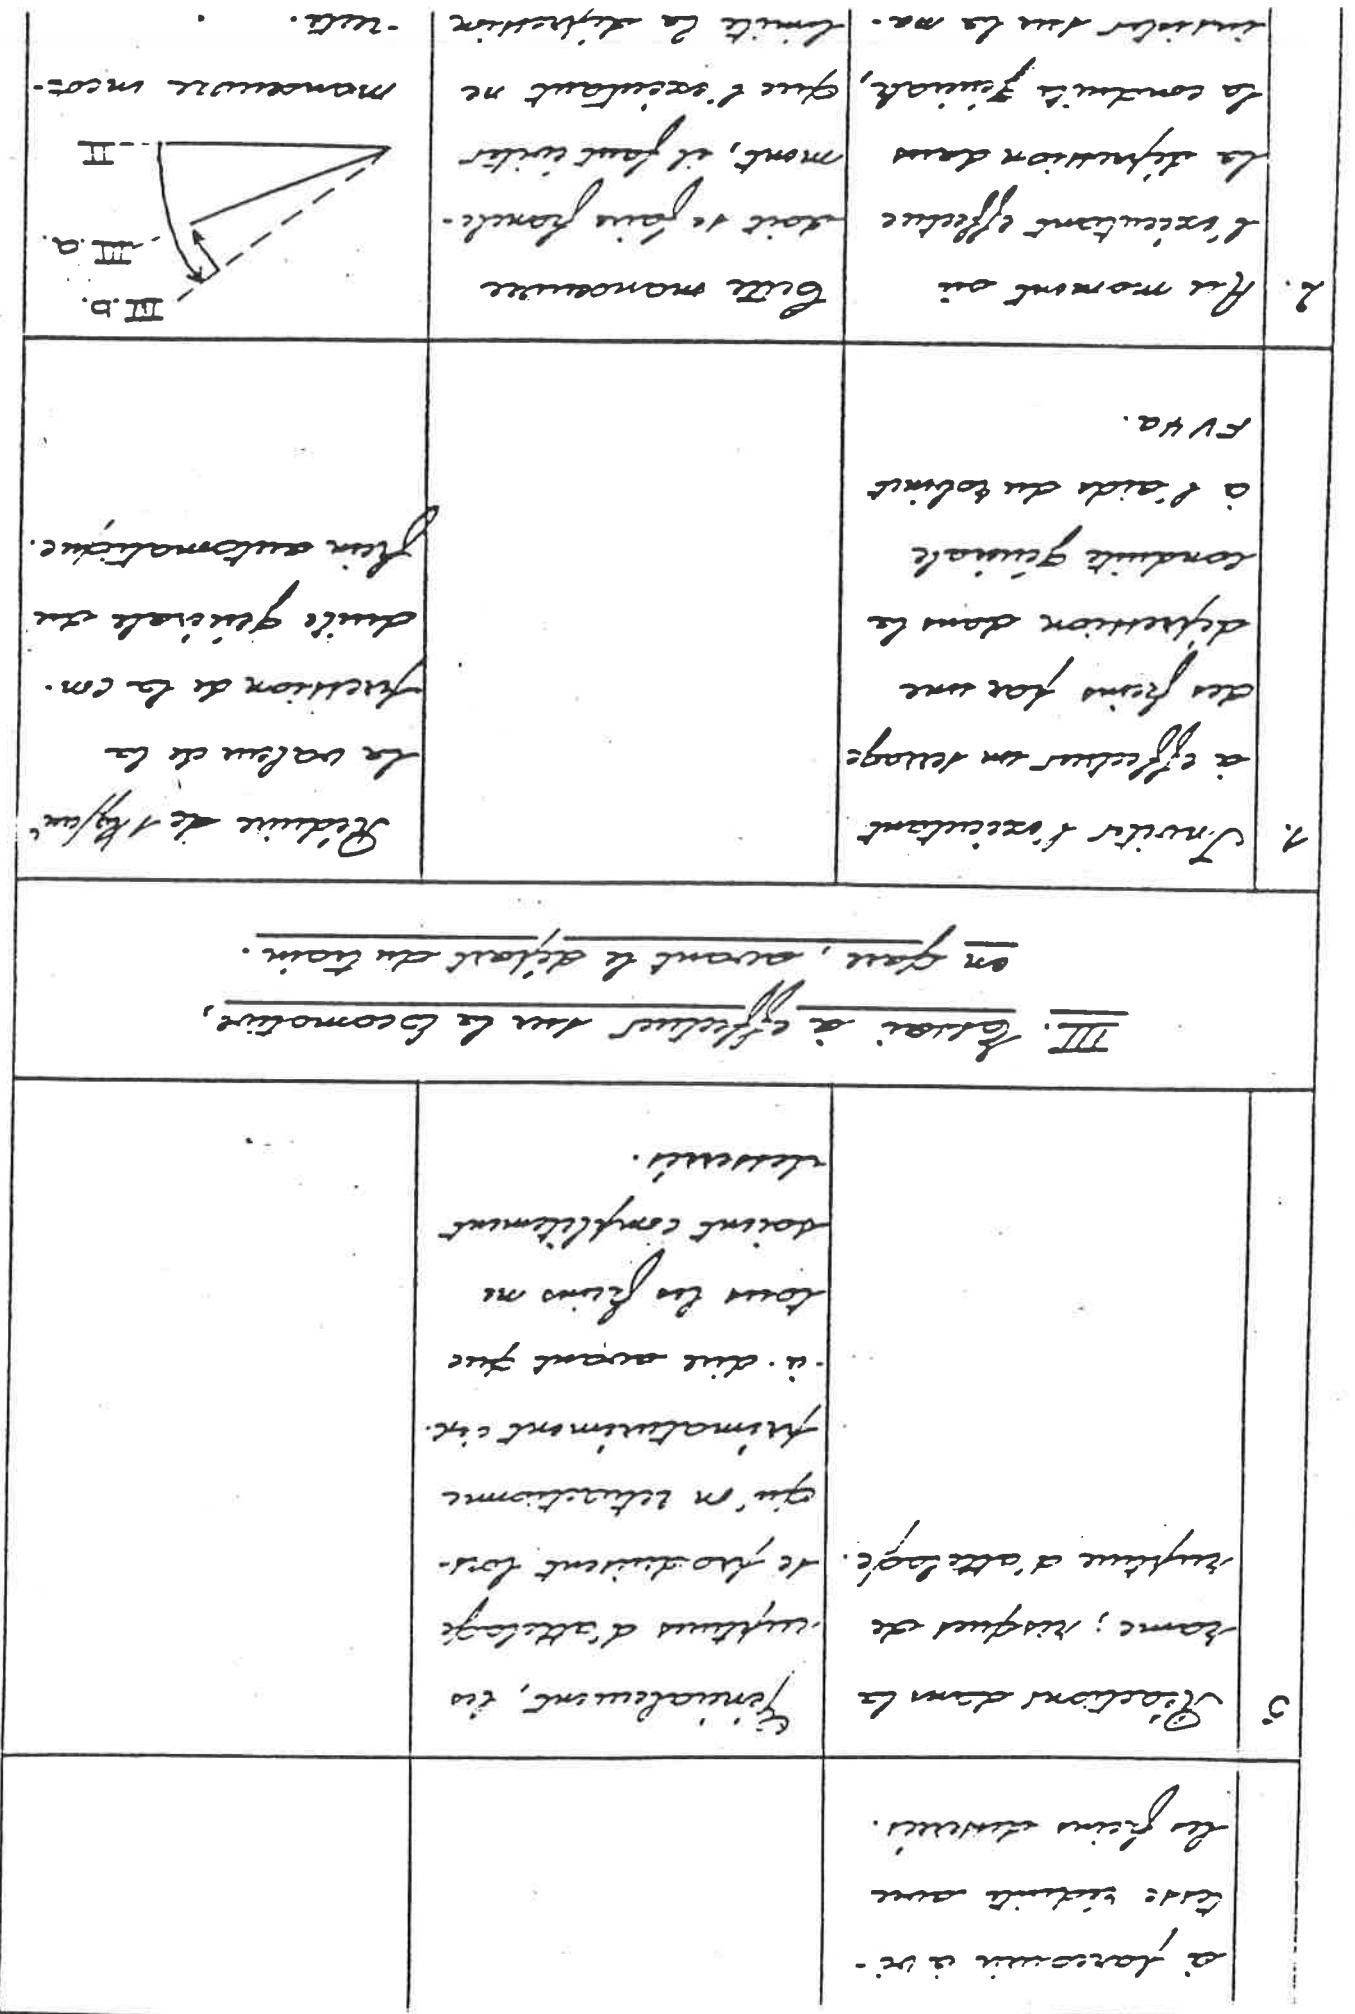 à parcourir à vi-
tesse réduite avec
les freins desserrés.
5
Réactions dans la
rame; risques de
rupture d'attelage.
Généralement, les
ruptures d'attelage
se produisent lors-
qu'on retractionne
prématurément c.à.
-à-dire avant que
tous les freins ne
soient complètement
desserrés.
III. Essai à effectuer sur la locomotive,
en gare, avant le départ du train.
1.
Inviter l'exécutant
à effectuer un serrage
des freins par une
dépression dans la
conduite générale
à l'aide du robinet
FV4a.
Réduire de 1kg/cm²
la valeur de la
pression de la con-
duite générale du
frein automatique.
2.
Au moment où
l'exécutant effectue
la dépression dans
la conduite générale,
insister sur la ma-
Cette manoeuvre
doit se faire franche-
ment, il faut éviter
que l'exécutant ne
limite la dépression
III.b.
III.a.
II
manoeuvre incor-
recte.